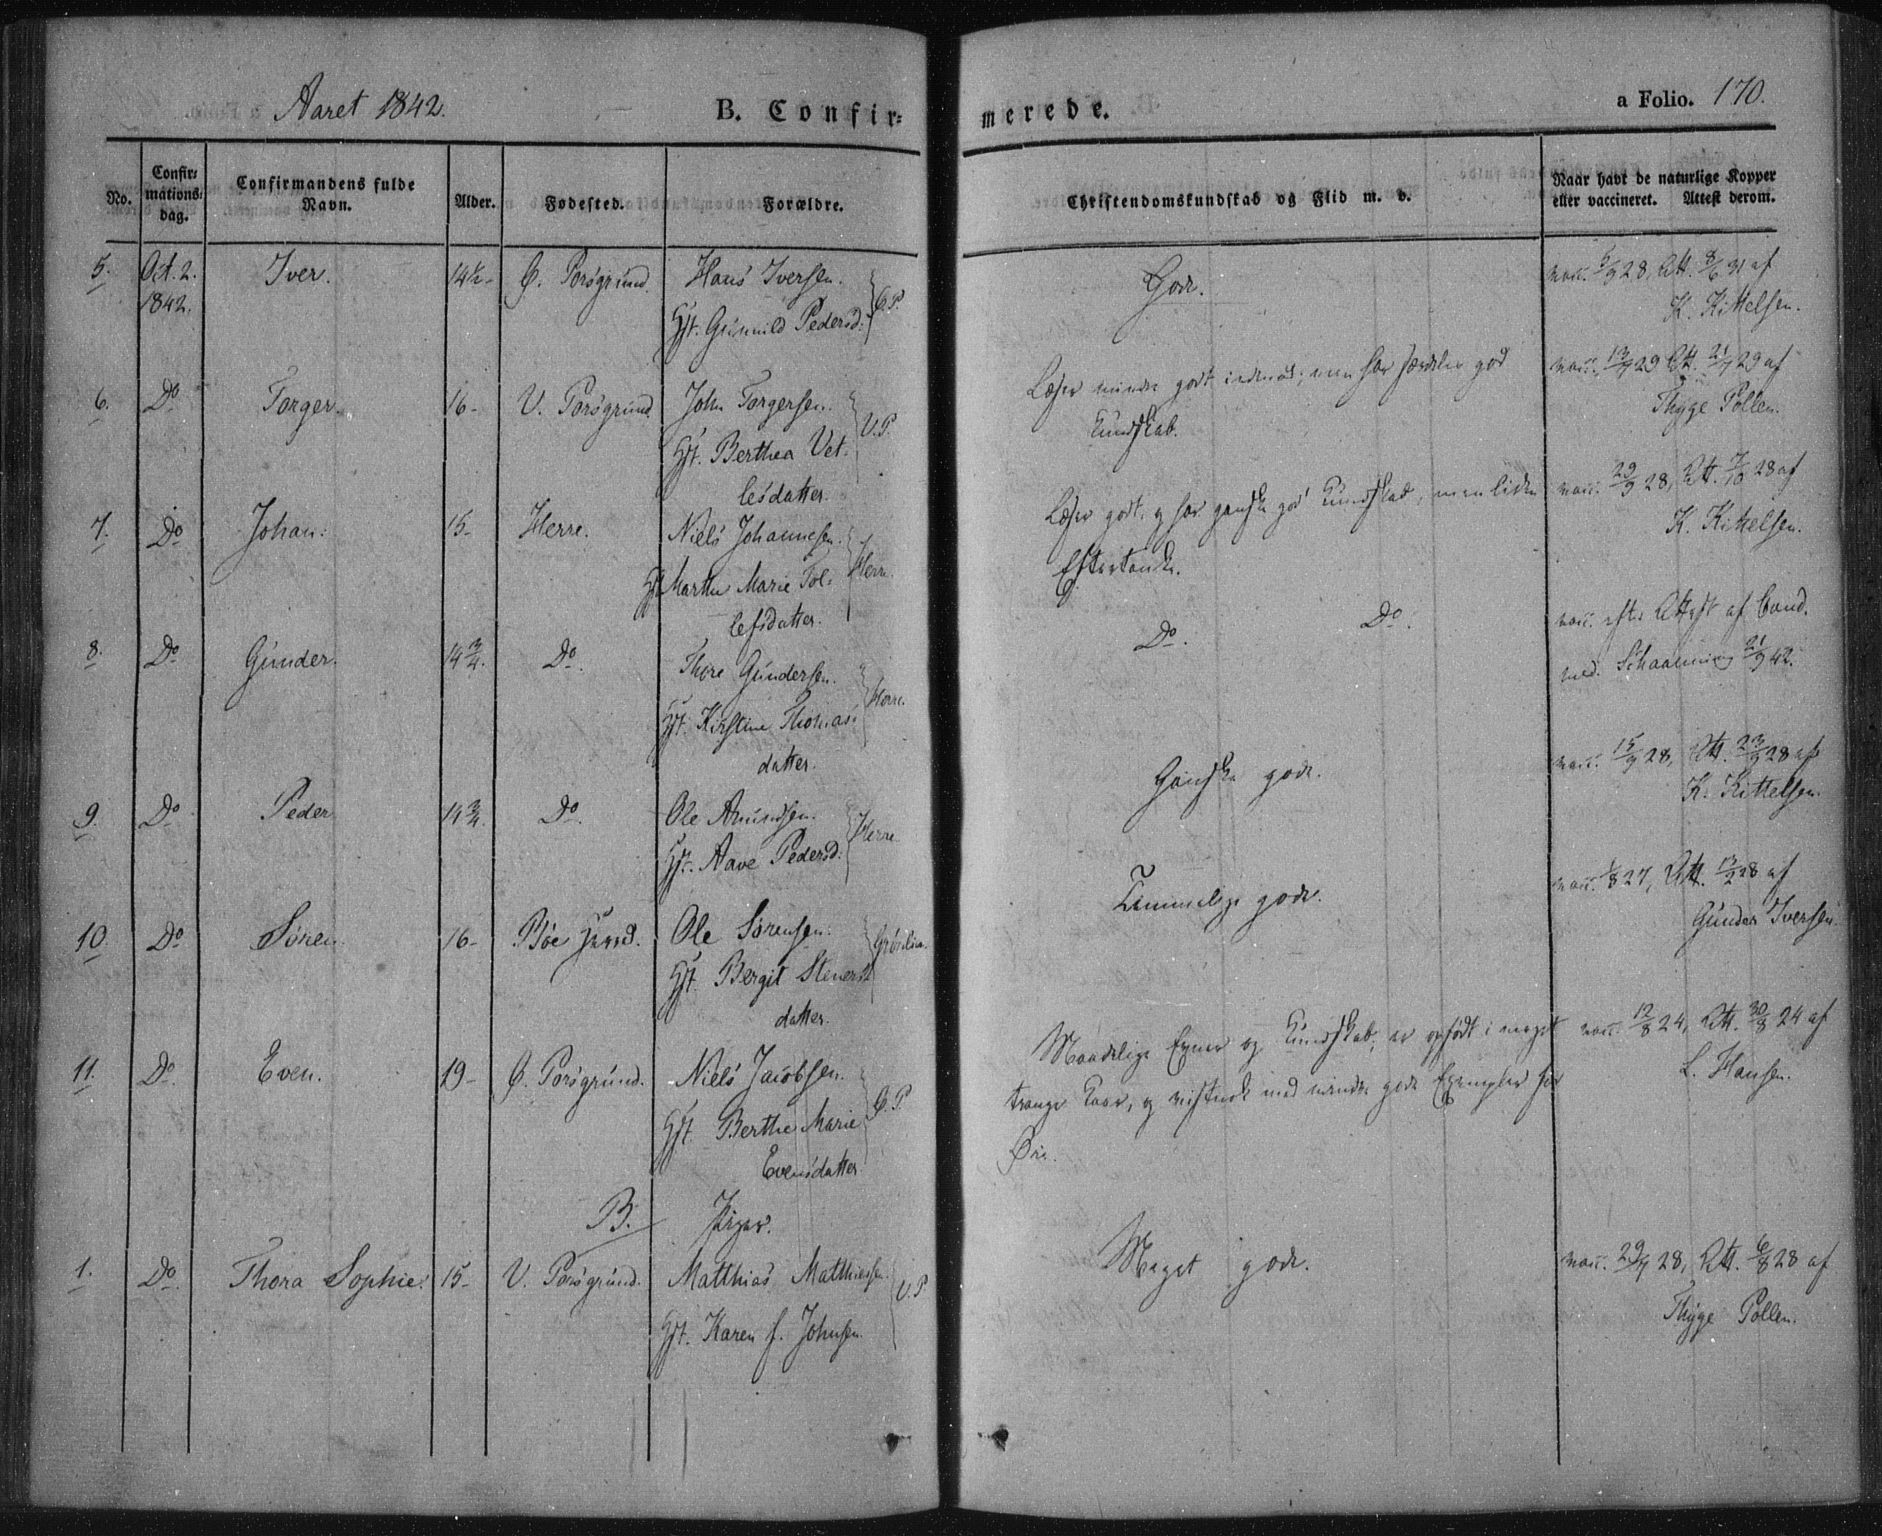 Aaret 1842. B. Confir- merede. a Folio. 170.
No. Confir-mations-dag. Confirmandens fulde Navn. Alder. Fødested. Forældre. Christendomskundskab og Flid m. v. Naar havt de naturlige Kopper eller vaccineret. Attest derom.
5. Oct. 2. Iver. 14½- Ø. Porsgrund. Hans Iversen. Gode. vacc. 5/9 28, Att. 8/6 31 af
1842. Hst. Gunnild Pedersd: Ø.P. K. Kittelsen.
6. Do Torger. 16- V. Porsgrund. John Torgersen. Læser mindre godt indenad; men har særdeles god vacc. 13/7 29 Att. 21/7 29 af
Hst. Berthea Vet- V.P. Kundskab. Thyge Pollen.
lesdatter.
7. Do Johan: 15- Herre. Niels Johannesen. Læser godt, og har ganske god Kundskab, men liden vacc. 29/9 28, Att. 7/10 28 af
Hst Marthe Marie Tol- Herre. Eftertanke. K. Kittelsen.
lefsdatter.
8. Do Gunder. 14¾. Do. Thore Gundersen. Do. Do. vacc. efter Attest af Cand.
Hst. Kirstine Thomas- Herre. med. Schaanning 21/9 42.
datter.
9. Do Peder 14¾. Do. Ole Amundsen. Ganske gode. vacc. 15/9 28, Att. 23/9 28 af
Hst. Aave Pedersd: Herre. K. Kittelsen.
10. Do Søren. 16- Bøe Ole Sørensen. Temmelige gode. vacc. 1/8 27, Att. 13/2 28 af
Hst. Bergit Gunder Iversen.
datter.
11. Do. Even. 19- Ø. Porsgrund. Niels Jacobsen. Maadelige Evner og Kundskab; er opfødt i meget vacc. 12/8 24, Att. 30/8 24 af
Hst. Berthe Marie Ø.P. trange Kaar, og vistnok med mindre gode Exempler for L. Hansen.
Evensdatter Øie.
B. Piger.
1. Do. Thora Sophie. 15- V. Porsgrund. Matthias Matthiesen. V.P. Meget gode. vacc. 29/7 28, Att. 6/8 28 af
Hst. Karen f. Johnsen. Thyge Pollen.